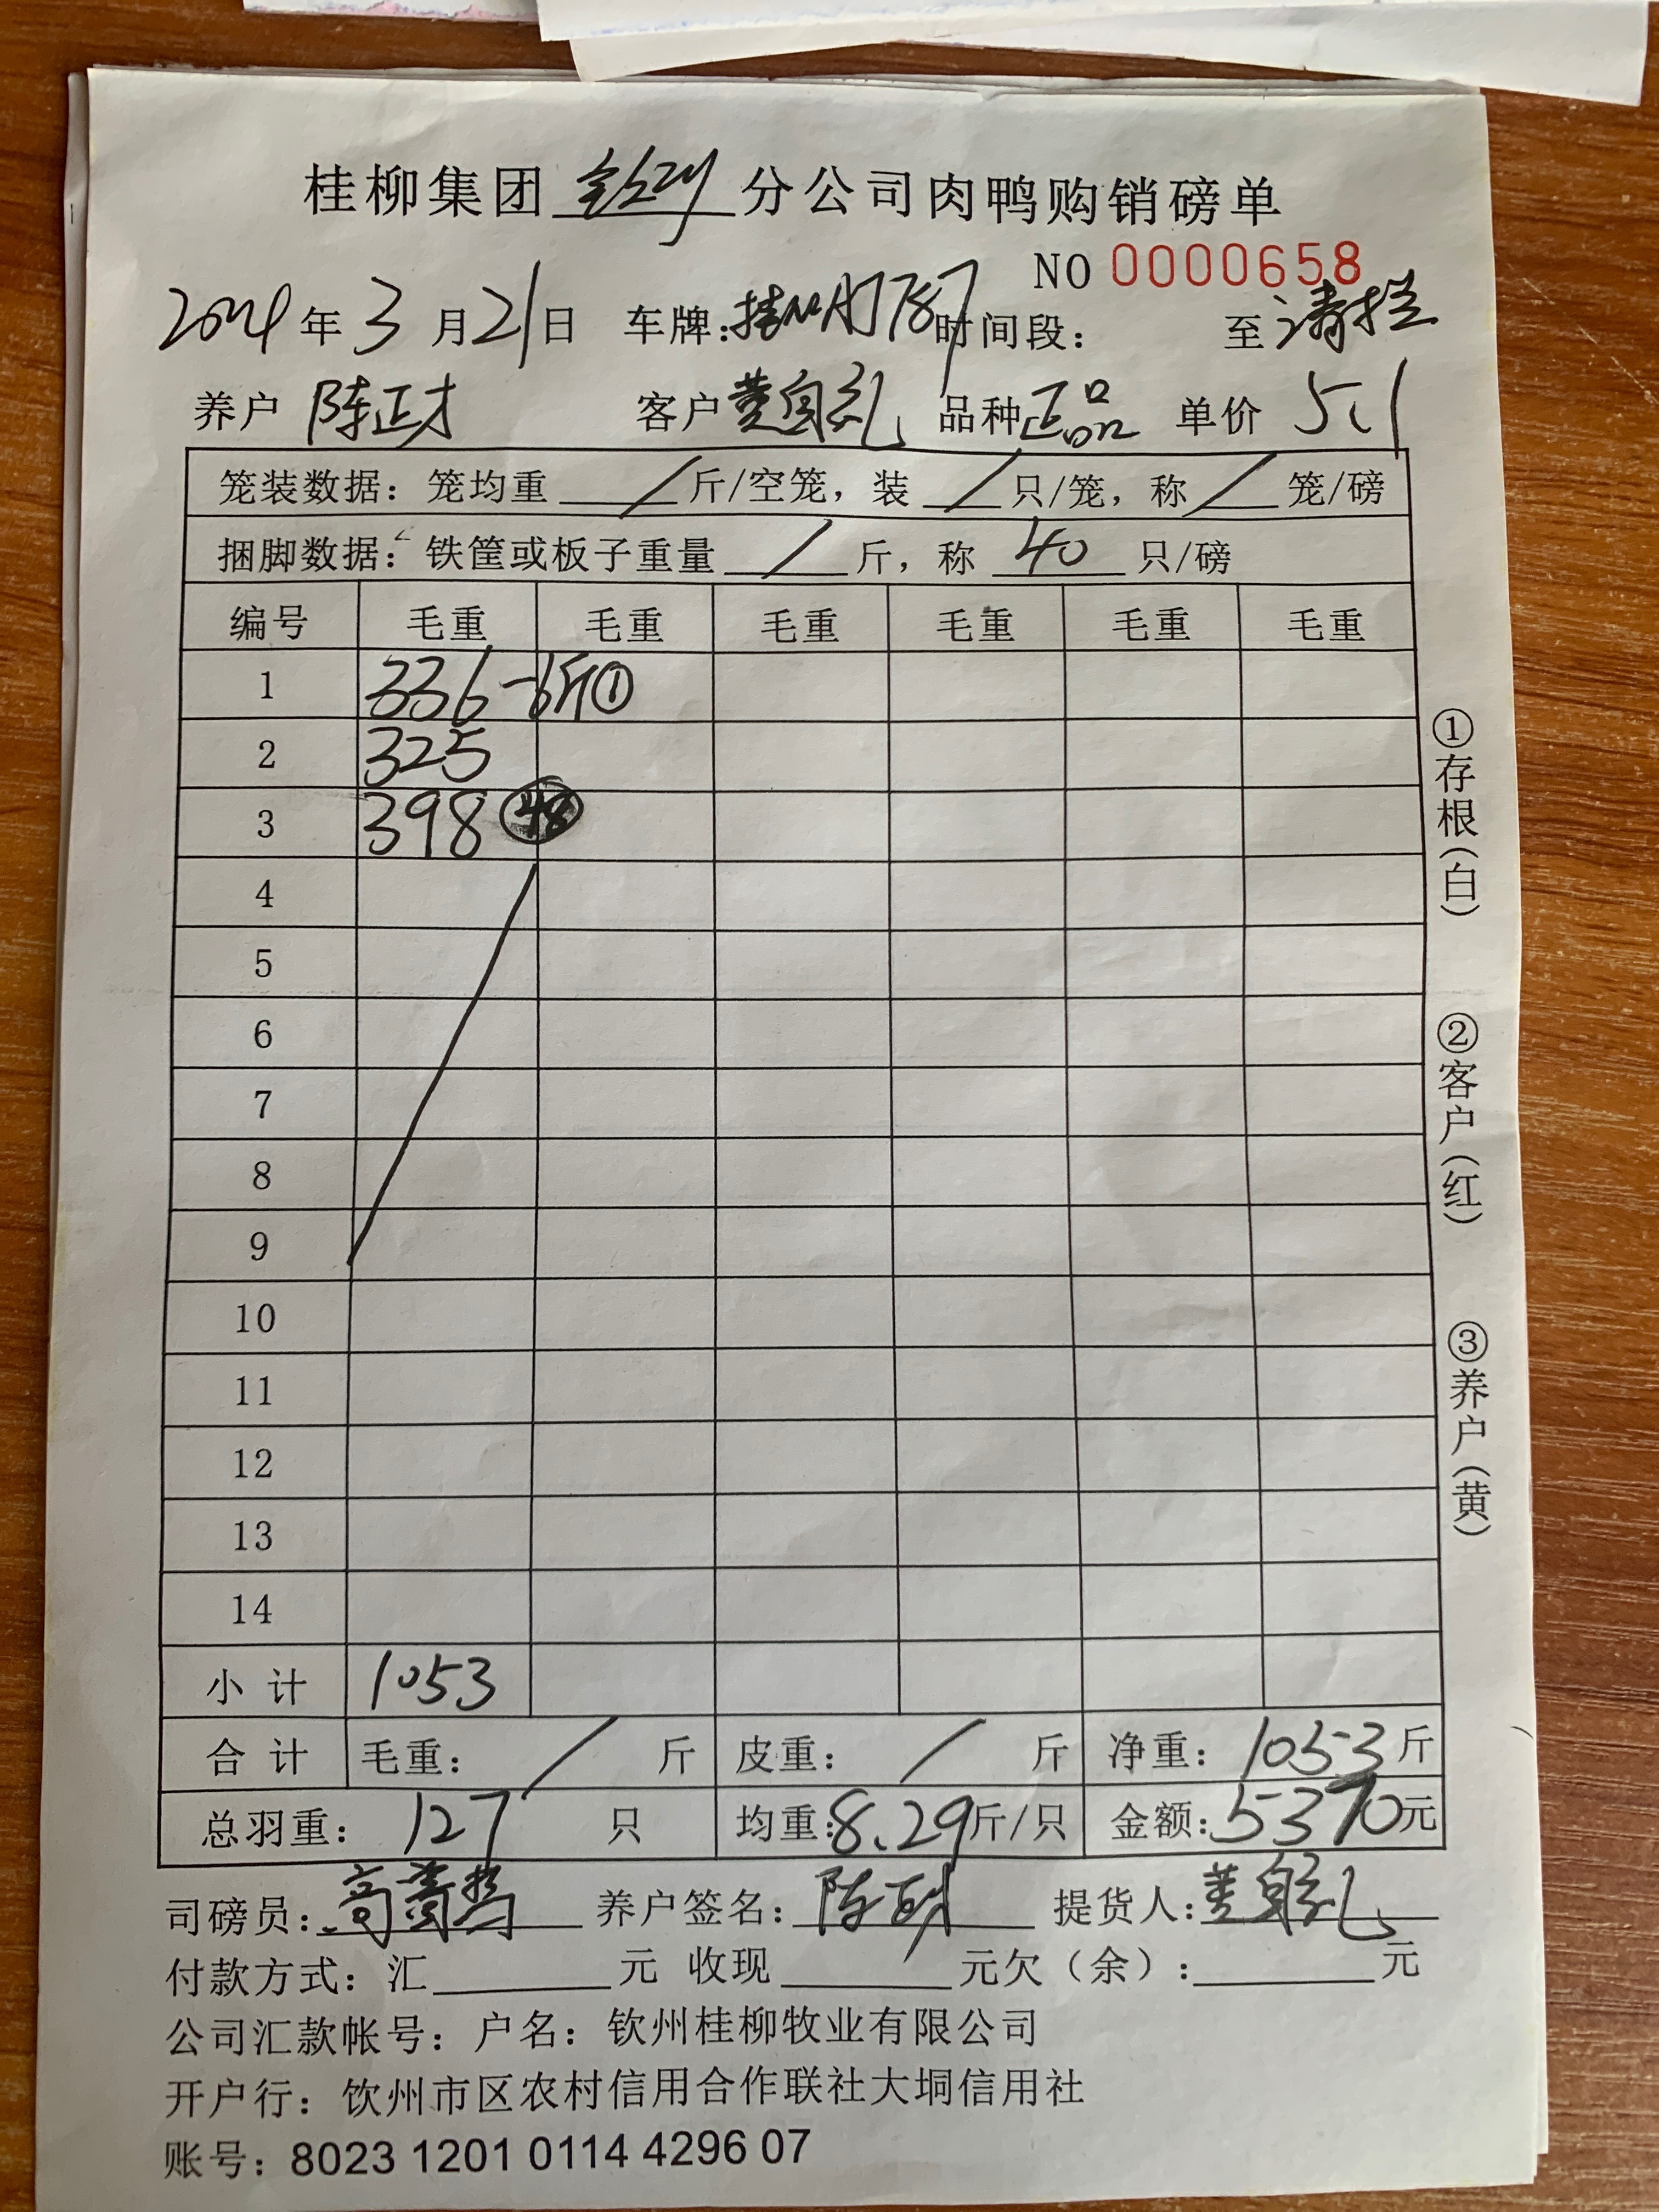 桂柳集团 钦州 分公司肉鸭购销磅单
NO 0000658
2024年3月21日 车牌: 787 时间段: 至 清栏
养户 陈正才 客户 黄自礼 品种 正品 单价 5.1
笼装数据: 笼均重 / 斤/空笼, 装 / 只/笼, 称 / 笼/磅
捆脚数据: 铁筐或板子重量 / 斤, 称 40 只/磅
编号 毛重 毛重 毛重 毛重 毛重 毛重
1 336 -6斤①
2 325
3 398 48
4
5
6
7
8
9
10
11
12
13
14
小计 1053
合计 毛重: / 斤 皮重: / 斤 净重: 1053斤
总羽重: 127 只 均重: 8.29斤/只 金额: 5370元
司磅员: 养户签名: 陈 提货人: 黄自礼
付款方式: 汇 元 收现 元欠(余): 元
公司汇款帐号: 户名: 钦州桂柳牧业有限公司
开户行: 钦州市区农村信用合作联社大垌信用社
账号: 8023 1201 0114 4296 07
①存根(白)
②客户(红)
③养户(黄)